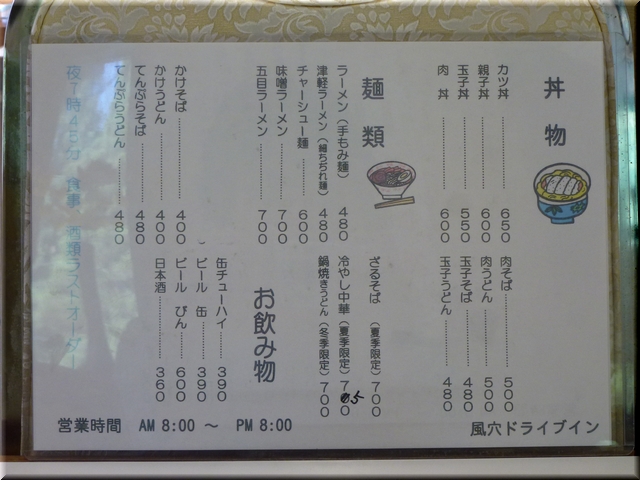 丼物
カツ丼……………650
親子丼……………600
玉子丼……………550
肉丼………………600
肉そば……………500
肉うどん…………500
玉子そば…………480
玉子うどん………480
麺類
ラーメン（手もみ麺）480
津軽ラーメン（細ちぢれ麺）480
チャーシュー麺………600
味噌ラーメン………700
五目ラーメン………700
ざるそば（夏季限定）700
冷やし中華（夏季限定）705
鍋焼きうどん（冬季限定）700
かけそば……………400
かけうどん…………400
てんぷらそば………480
てんぷらうどん……480
お飲み物
缶チューハイ………390
ビール 缶………390
ビール びん……600
日本酒……………360
夜7時45分 食事、酒類ラストオーダー
営業時間 AM 8:00 ～ PM 8:00
風穴ドライブイン